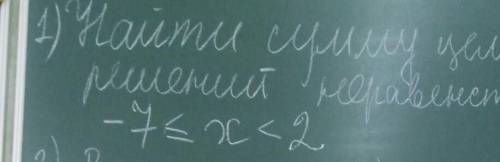 1) Найти сумму цел
решений неравенст
-7 ≤ x < 2
2)